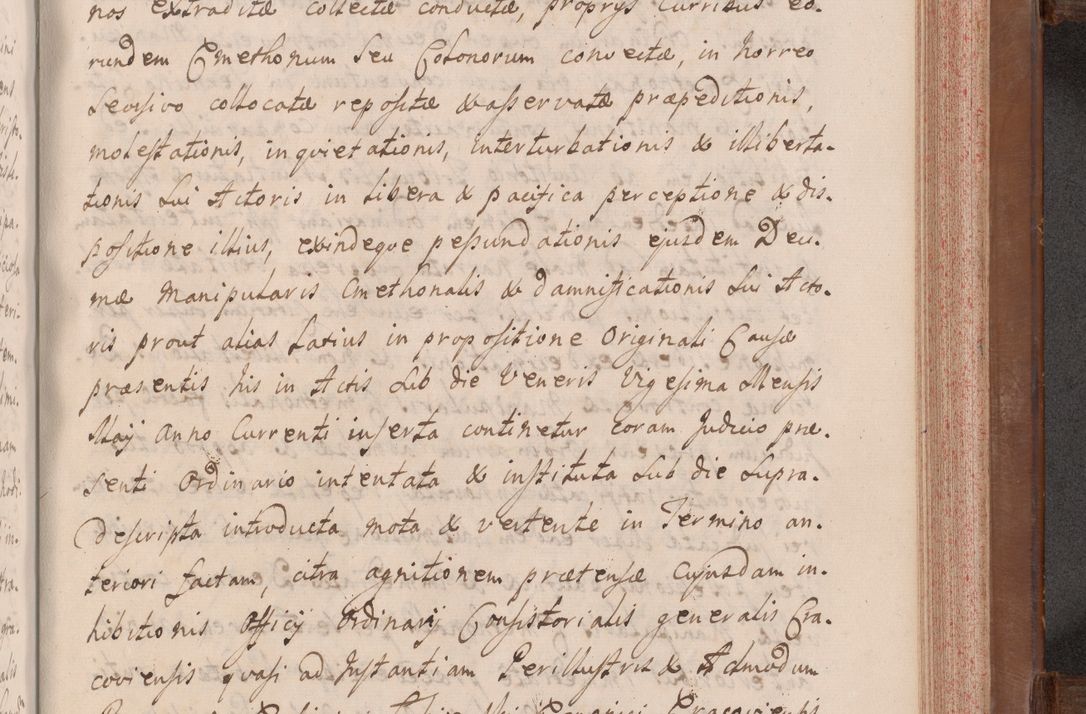 nos extraditæ collectæ conductæ, proprys Curribus eo-
rundem Cmethonum Seu Colonorum convectæ, in horreo
Sessivo collocatæ repositæ & asservatæ præpeditionis,
molestationis, inquietationis, interturbationis & illiberta-
tionis Sui Actoris in libera & pacifica perceptione & dis-
positione illius, exindeque pessundationis ejusdem Deci-
mæ Manipularis Cmethonalis & damnificationis Sui Acto-
ris prout alias Latius in propositione Originali Causæ
præsentis his in Actis Sub die Veneris Vigesima Mensis
Maij Anno Currenti inserta continetur Coram Judicio præ-
senti Ordinario intentata & instituta Sub die Supra-
descripta introducta mota & vertente in Termino an-
teriori factam, citra agnitionem prætensæ Cujusdam in-
hibitionis Officij Ordinarij Consistorialis generalis Cra-
coviensis quasi ad Instantiam Perillustris & Admodum